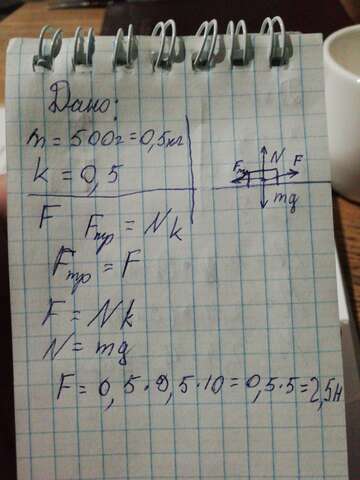 Дано:
m = 500г = 0,5кг
k = 0,5
N
Fтр
F
mg
F
Fтр = Nk
Fтр = F
F = Nk
N = mg
F = 0,5·0,5·10 = 0,5·5 = 2,5Н